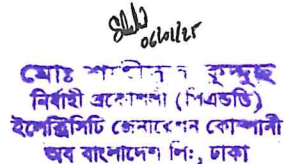 06/01/25
মোঃ কুদ্দুছ
নির্বাহী প্রকৌশলী (পিএন্ডডি)
ইলেক্ট্রিসিটি জেনারেশন কোম্পানী
অব বাংলাদেশ লি:, ঢাকা